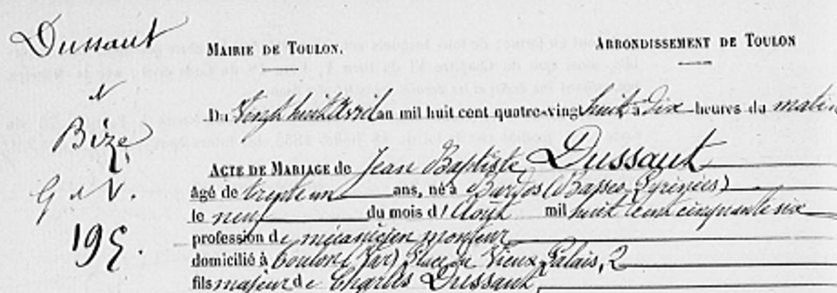 Dussaut
MAIRIE DE TOULON.
ARRONDISSEMENT DE TOULON
&
Bize
G d V.
195.
Du Vingt huit Avril an mil huit cent quatre-vingt huit à dix heures du matin
ACTE DE MARIAGE de Jean Baptiste Dussaut
âgé de trente un ans, né à Bardos (Basses-Pyrénées)
le neuf du mois d'Août mil huit cent cinquante six
profession de mécanicien monteur
domicilié à Toulon (Var) Place du Vieux Palais, 2
fils majeur de Charles Dussaut,